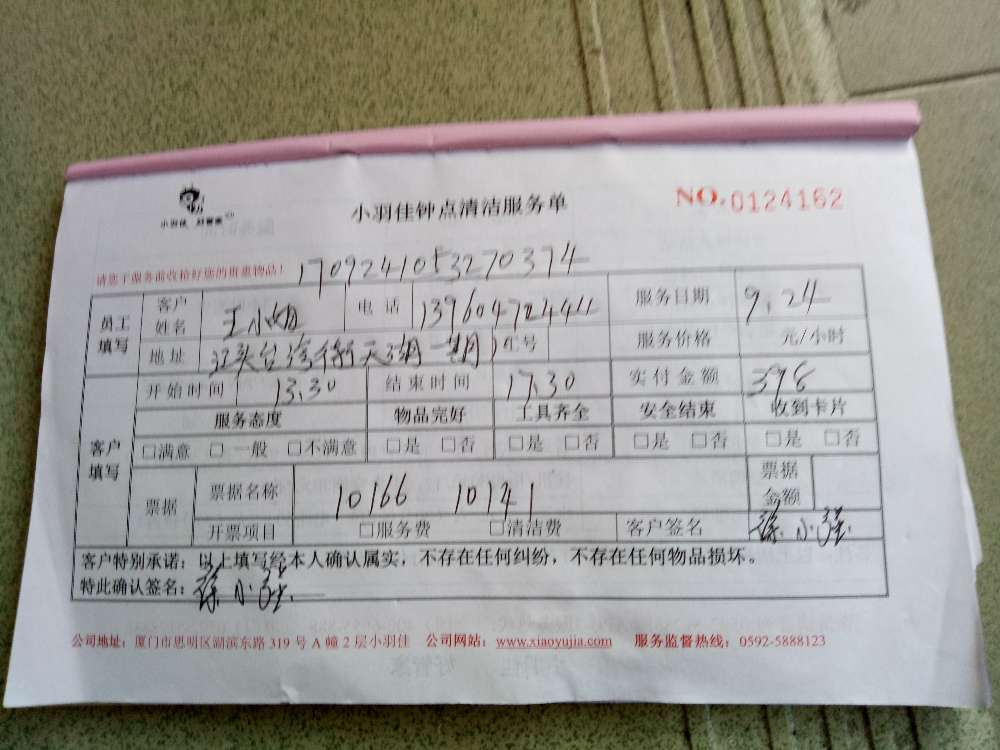 小羽佳 好管家
小羽佳钟点清洁服务单
NO. 0124162
请您于服务前收拾好您的贵重物品!
1709241053270374
员工填写 客户姓名 王小姐 电话 13960472444 服务日期 9.24
地址 江头台湾街天湖一期 号 服务价格 元/小时
客户填写 开始时间 13.30 结束时间 17.30 实付金额
服务态度 物品完好 工具齐全 安全结束 收到卡片
□满意 □一般 □不满意 □是 □否 □是 □否 □是 □否 □是 □否
票据 票据名称 10166 10141 票据金额
开票项目 □服务费 □清洁费 客户签名
客户特别承诺:以上填写经本人确认属实,不存在任何纠纷,不存在任何物品损坏。
特此确认签名:
公司地址:厦门市思明区湖滨东路 319 号 A 幢 2 层小羽佳 公司网站:www.xiaoyujia.com 服务监督热线:0592-5888123